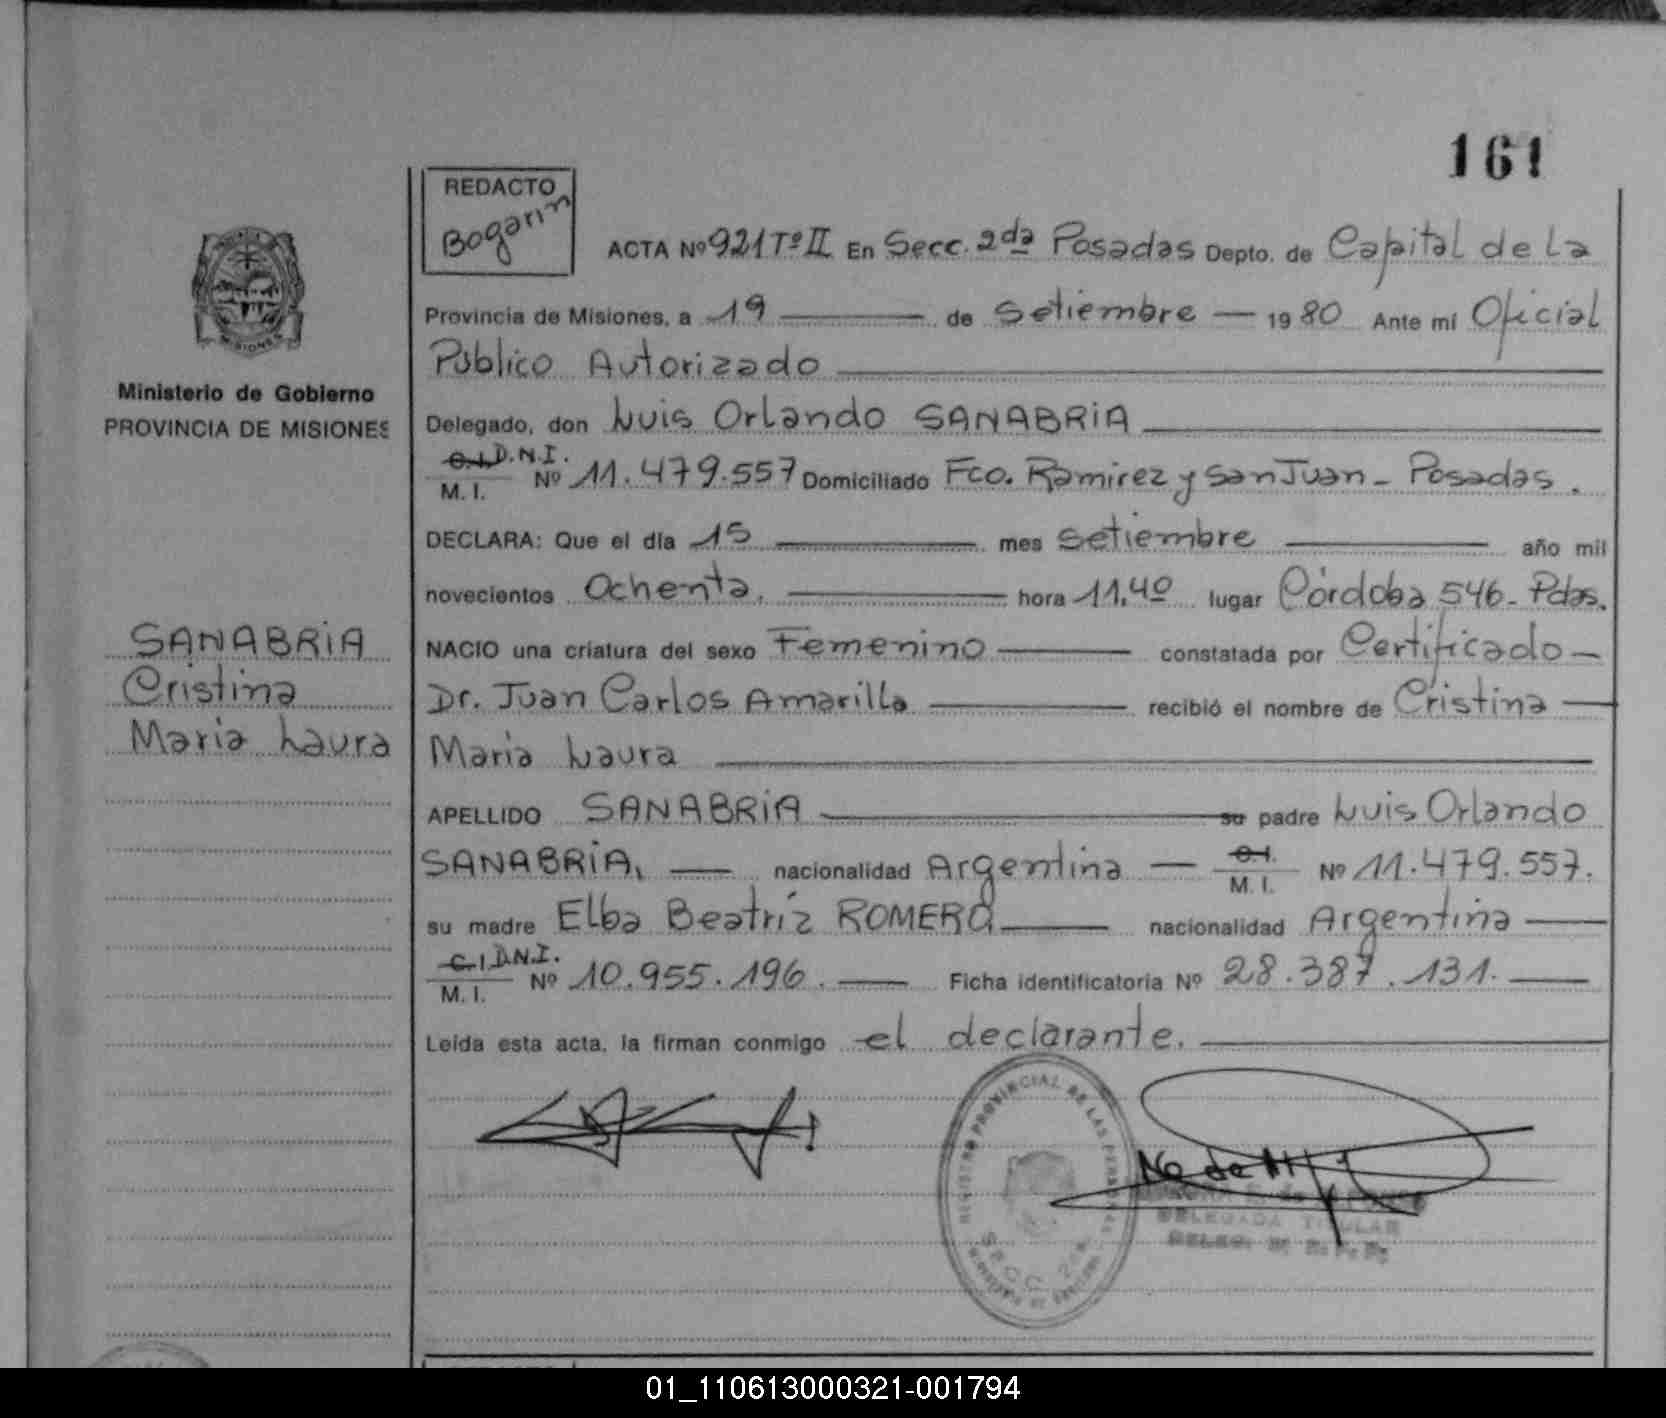 161
REDACTO
Bogarin
ACTA Nº 921 Tº II En Secc. 2da Posadas Depto. de Capital de La
Provincia de Misiones, a 19 de Setiembre 1980 Ante mí Oficial
Público Autorizado
Delegado, don Luis Orlando SANABRIA
C.I. D.N.I.
M. I. Nº 11.479.557 Domiciliado Fco. Ramirez y San Juan - Posadas.
DECLARA: Que el día 15 mes setiembre año mil
novecientos Ochenta. hora 11,40 lugar Córdoba 546 - Pdas.
NACIO una criatura del sexo Femenino constatada por Certificado
Dr. Juan Carlos Amarilla recibió el nombre de Cristina
Maria Laura
APELLIDO SANABRIA su padre Luis Orlando
SANABRIA, nacionalidad Argentina C.I. M. I. Nº 11.479.557.
su madre Elba Beatriz ROMERO nacionalidad Argentina
C.I. D.N.I.
M. I. Nº 10.955.196. Ficha identificatoria Nº 28.387.131.
Leída esta acta, la firman conmigo el declarante.
MISIONES
Ministerio de Gobierno
PROVINCIA DE MISIONES
SANABRIA
Cristina
Maria Laura
REGISTRO PROVINCIAL DE LAS PERSONAS
SECC. 2da
DELEGADA TITULAR
01_110613000321-001794